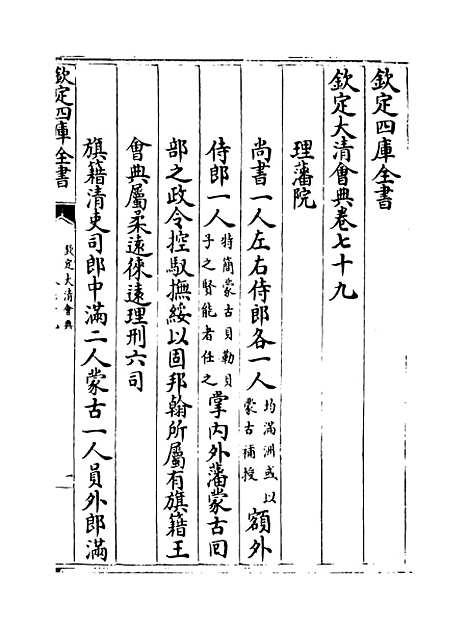 欽定四庫全書
欽定大清會典卷七十九
理藩院
尚書一人左右侍郎各一人均滿洲或以蒙古補授額外
侍郎一人特簡蒙古貝勒貝子之賢能者任之掌内外藩蒙古回
部之政令控馭撫綏以固邦翰所屬有旗籍王
會典屬柔遠徠遠理刑六司
旗籍清吏司郎中滿二人蒙古一人員外郎滿
欽定四庫全書
欽定大清會典